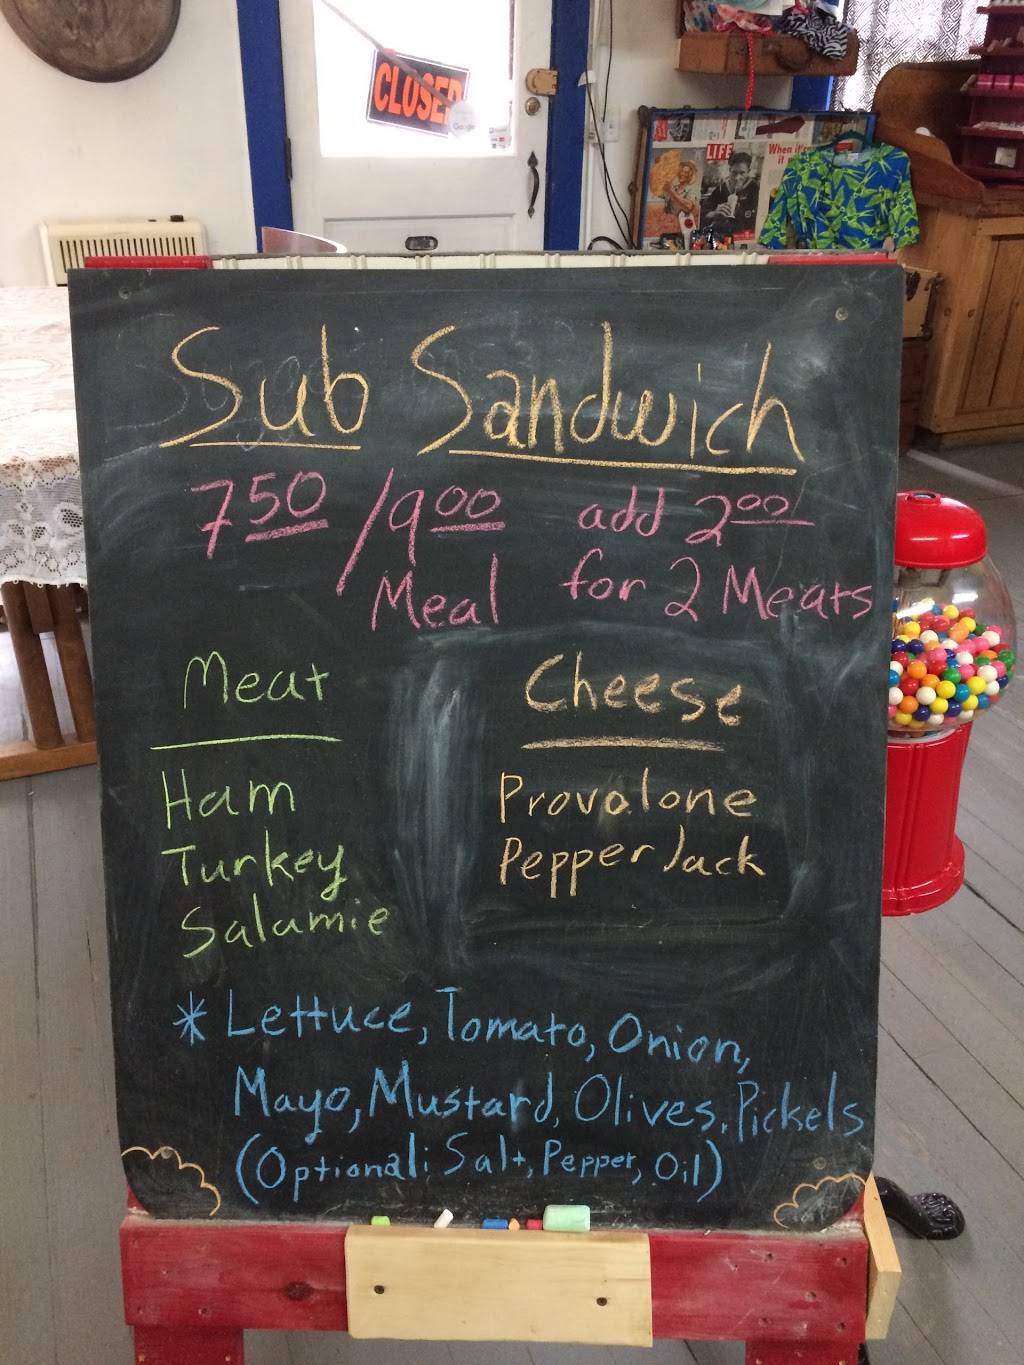 CLOSED
Google
LIFE
Sub Sandwich
7 50 / 9 00 Meal
add 2 00
for 2 Meats
Meat
Ham
Turkey
Salamie
Cheese
Provolone
Pepper Jack
* Lettuce, Tomato, Onion,
Mayo, Mustard, Olives, Pickels
(Optional: Salt, Pepper, Oil)